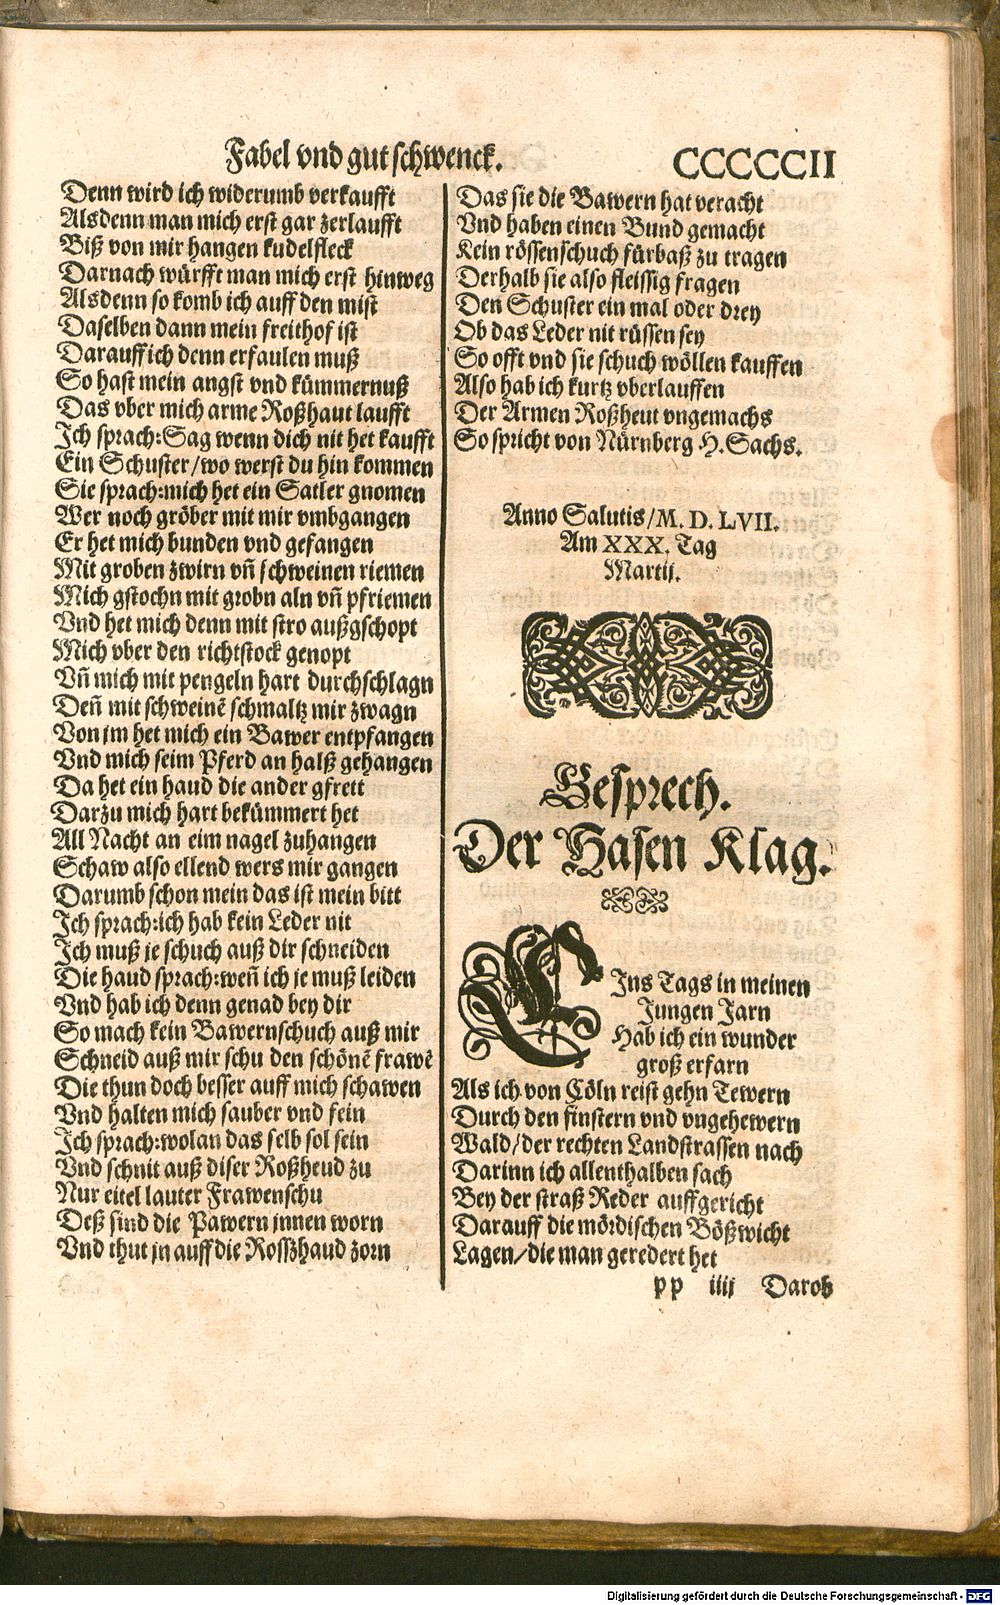 Fabel vnd gut schwenck. CCCCCCII
Denn wird ich widerumb verkaufft
Alsdenn man mich erst gar zerlaufft
Biß von mir hangen kudelfleck
Darnach würfft man mich erst hinweg
Alsdenn so komb ich auff den mist
Daselben dann mein freithof ist
Darauff ich denn erfaulen muß
So hast mein angst vnd kümmernuß
Das vber mich arme Roßhaut laufft
Ich sprach: Sag wenn dich nit het kaufft
Ein Schuster/ wo werst du hin kommen
Sie sprach: mich het ein Satler gnomen
Wer noch gröber mit mir vmbgangen
Er het mich bunden vnd gefangen
Mit groben zwirn vñ schweinen riemen
Mich gstochn mit grobn aln vñ pfriemen
Vnd het mich denn mit stro außgschopt
Mich vber den richtstock genopt
Vñ mich mit pengeln hart durchschlagn
Deñ mit schweinē schmaltz mir zwagn
Von jm het mich ein Bawer entpfangen
Vnd mich seim Pferd an halß gehangen
Da het ein haud die ander gfrett
Darzu mich hart bekümmert het
All Nacht an eim nagel zuhangen
Schaw also ellend wers mir gangen
Darumb schon mein das ist mein bitt
Ich sprach: ich hab kein Leder nit
Ich muß je schuch auß dir schneiden
Die haud sprach: weñ ich je muß leiden
Vnd hab ich denn genad bey dir
So mach kein Bawernschuch auß mir
Schneid auß mir schu den schönē frawē
Die thun doch besser auff mich schawen
Vnd halten mich sauber vnd fein
Ich sprach: wolan das selb sol sein
Vnd schnit auß diser Roßheud zu
Nur eitel lauter Frawenschu
Deß sind die Pawern jnnen worn
Vnd thut jn auff die Rosszhaud zorn
Das sie die Bawern hat veracht
Vnd haben einen Bund gemacht
Kein rössenschuch fürbaß zu tragen
Derhalb sie also fleissig fragen
Den Schuster ein mal oder drey
Ob das Leder nit rüssen sey
So offt vnd sie schuch wöllen kauffen
Also hab ich kurtz vberlauffen
Der Armen Roßheut vngemachs
So spricht von Nürnberg H. Sachs.
Anno Salutis/ M. D. LVII.
Am XXX. Tag
Martij.
Gesprech.
Der Hasen Klag.
EIns Tags in meinen
Jungen Jarn
Hab ich ein wunder
groß erfarn
Als ich von Cöln reist gehn Tewern
Durch den finstern vnd vngehewern
Wald/ der rechten Landstrassen nach
Darinn ich allenthalben sach
Bey der straß Reder auffgericht
Darauff die mördischen Bößwicht
Lagen/ die man geredert het
pp iiij Darob
Digitalisierung gefördert durch die Deutsche Forschungsgemeinschaft - DFG